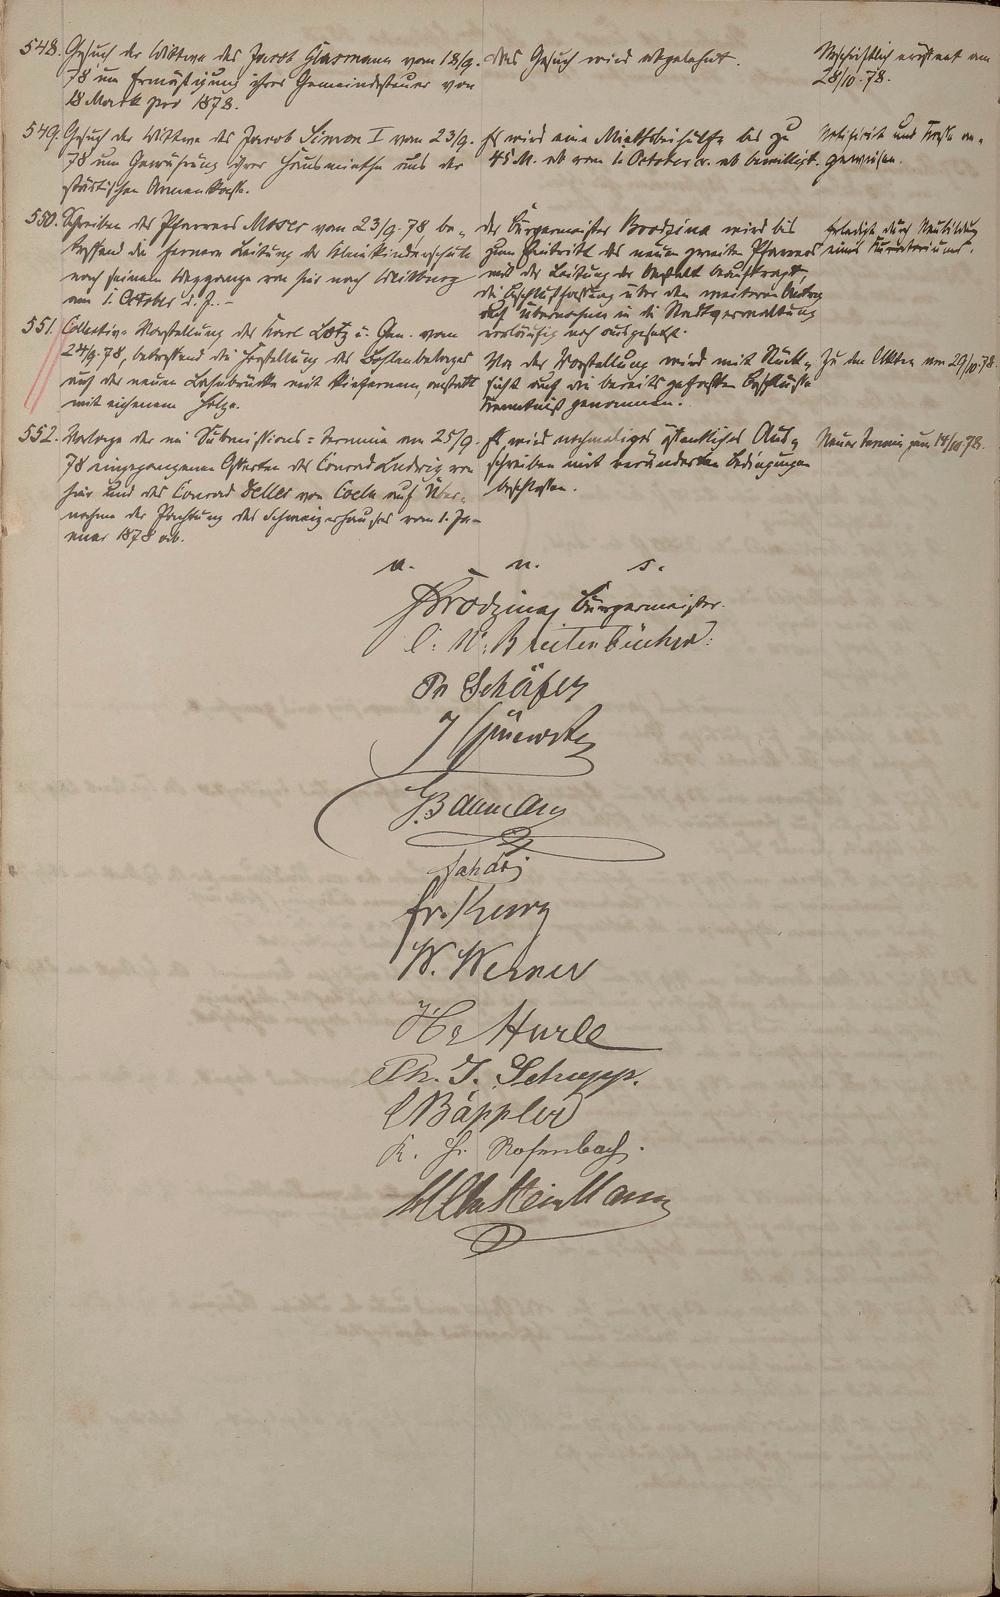 548. Gesuch der Wittwe des Jacob Glasmann vom 18/9.
78 um Ermäßigung ihrer Gemeindesteuer von
18 Mark pro 1878.
das Gesuch wird abgelehnt.
Abschriftlich eröffnet am
28/10.78.
549. Gesuch der Wittwe des Jacob Simon I vom 23/9.
78 um Gewährung ihrer Hausmiethe aus der
städtischen Armenkasse.
Es wird eine Miethsbeihülfe bis zu
45 M. ab vom 1. October c. ab bewilligt.
Notificirt und Kasse an-
gewiesen.
550. Schreiben des Pfarrers Moser vom 23/9.78 be-
treffend die fernere Leitung der Kleinkinderschule
nach seinem Weggange von hier nach Weilburg
am 1. October d. J. -
der Bürgermeister Brodzina wird bis
zum Eintritt des neuen zweiten Pfarrers
mit der Leitung der Anstalt beauftragt,
die Beschlußfassung über den weiteren Antrag
auf Übernahme in die Stadtverwaltung
vorläufig noch ausgesetzt.
Erledigt durch Neubildung
eines Kuratoriums.
551. Collectiv-Vorstellung der Karl Lotz u. Gen. vom
24/9.78, betreffend die Herstellung des Bohlenbelages
auf der neuen Lahnbrücke mit kiefernem, anstatt
mit eichenem Holze.
Von der Vorstellung wird mit Rück-
sicht auf die bereits gefaßten Beschlüsse
Kenntniß genommen.
Zu den Akten am 29/10.78.
552. Vorlage der im Submissions-termine am 25/9.
78 eingegangenen Offerten des Conrad Ludwig von
hier und des Conrad Deller von Coeln auf Über-
nahme der Pachtung des Schweizerhauses vom 1. Ja-
nuar 1878 ab.
Es wird nochmaliges öffentliches Aus-
schreiben mit veränderten Bedingungen
beschlossen.
Neuer Termin zum 14/10 78.
v. n. s.
Brodzina, Bürgermeister.
C. W. Breitenbücher.
Ph Schäfer
J
G. Baumann
Fr. Kurz
W. Werner
Ph. J. Schupp.
C Bäppler
K. Fr. Rosenbach.